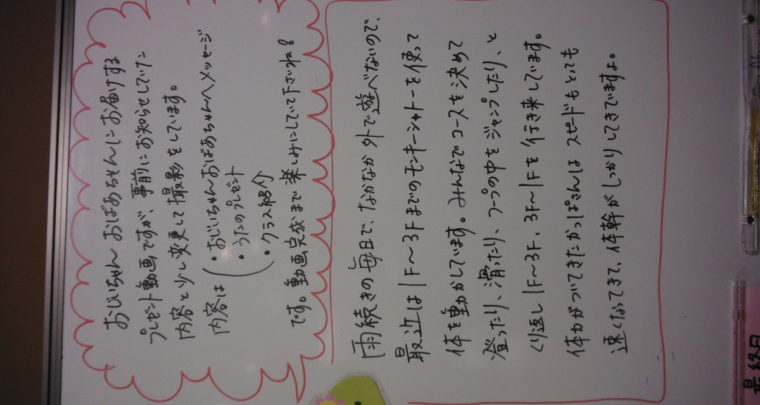 おじいちゃん おばあちゃんにお届けする
プレゼント動画ですが、事前にお知らせしていた
内容と少し変更して撮影をしています。
内容は
・おじいちゃんおばあちゃんへメッセージ
・うたのプレゼント
・クラス紹介
です。動画完成まで楽しみにしていて下さいね!
雨続きの毎日で、なかなか外で遊べないので、
最近は1F〜3Fまでのモンキーシャトーを使って
体を動かしています。みんなでコースを決めて
登ったり、滑ったり、フープの中をジャンプしたり、と
くり返し1F〜3F、3F〜1Fを行き来しています。
体力がついてきたかっぱさんは スピードもとっても
速くなってきて、体幹がしっかりしてきていますよ。
最終日